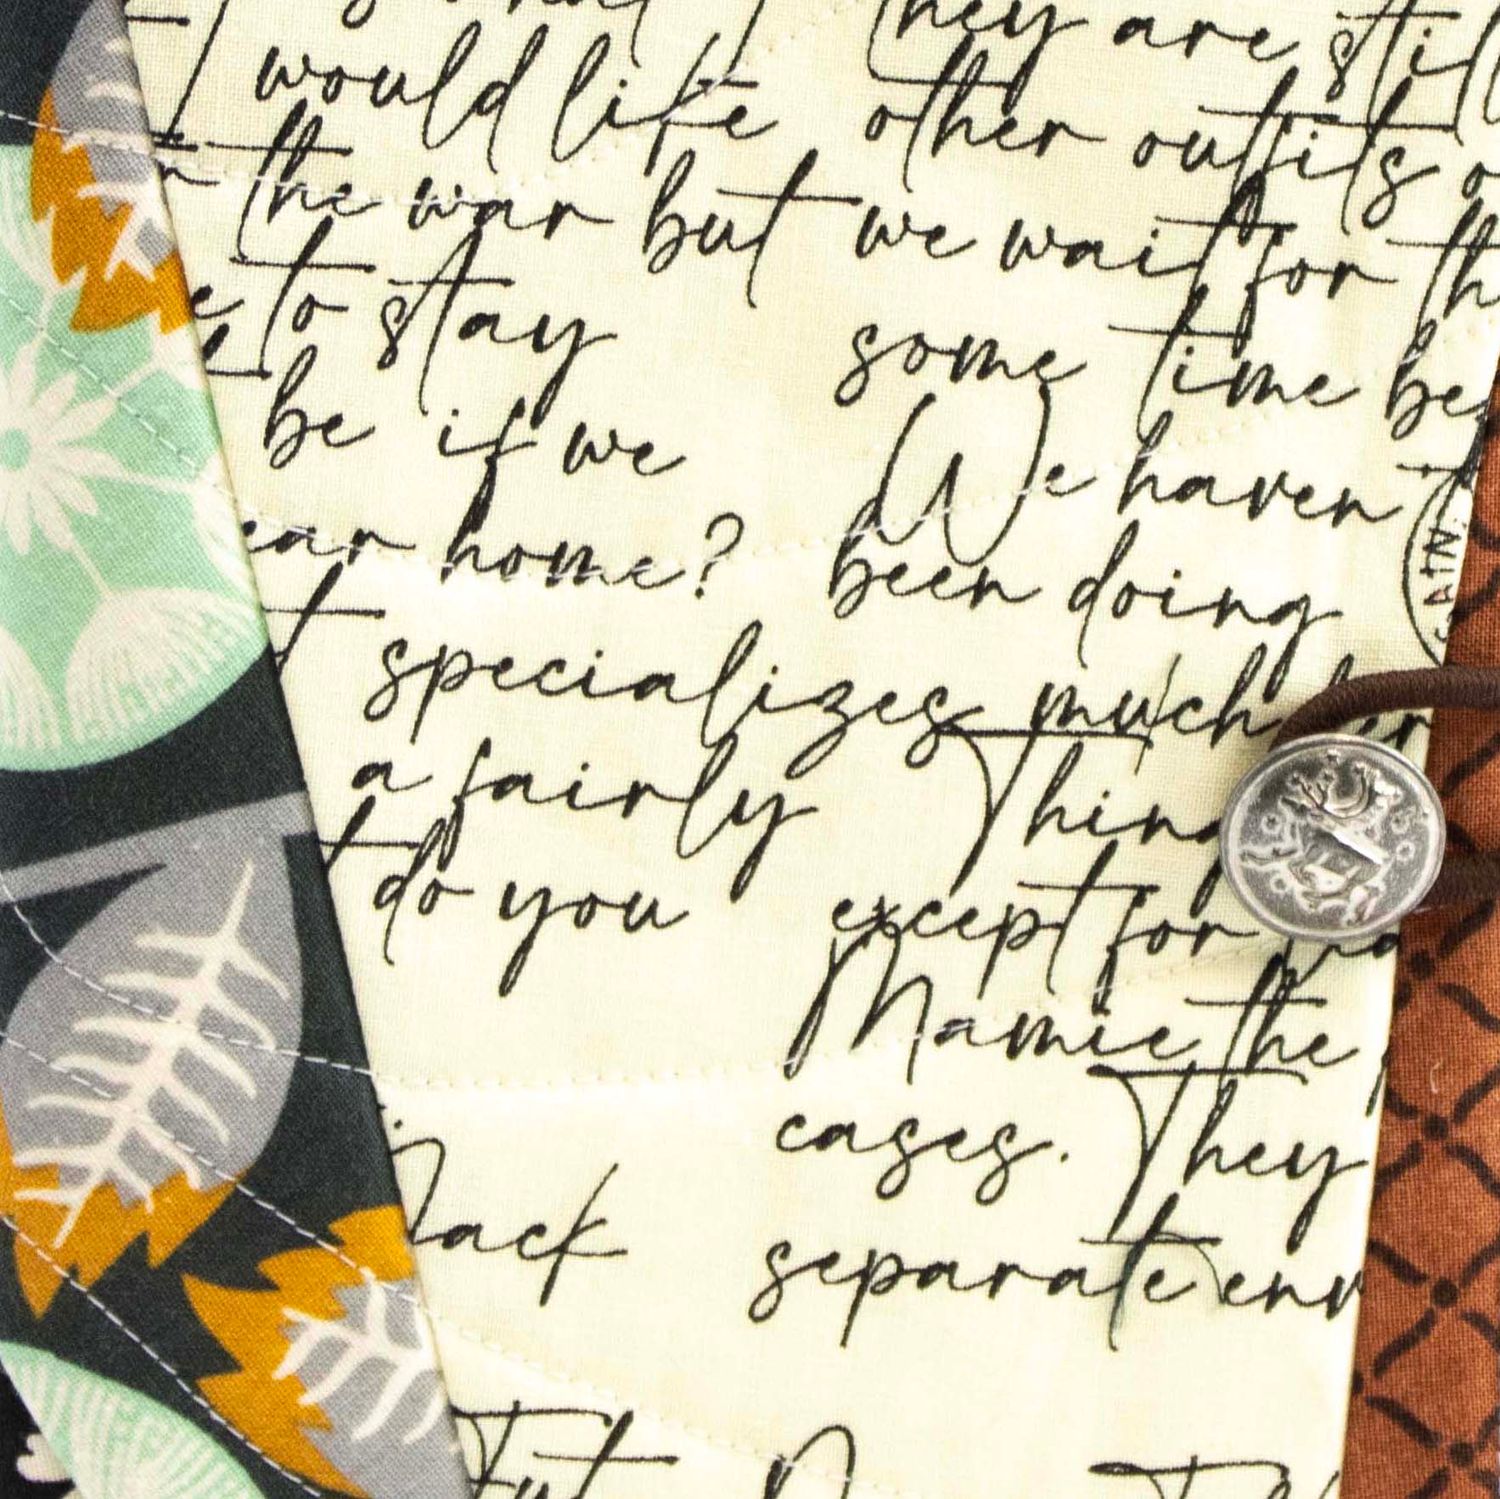 They are still
I would like other outfits
the war but we wait for
to stay some time
be if we We haven
home? been doing
specializes much
a fairly Thing
do you except for
Mamie the
cases. They
Jack separate